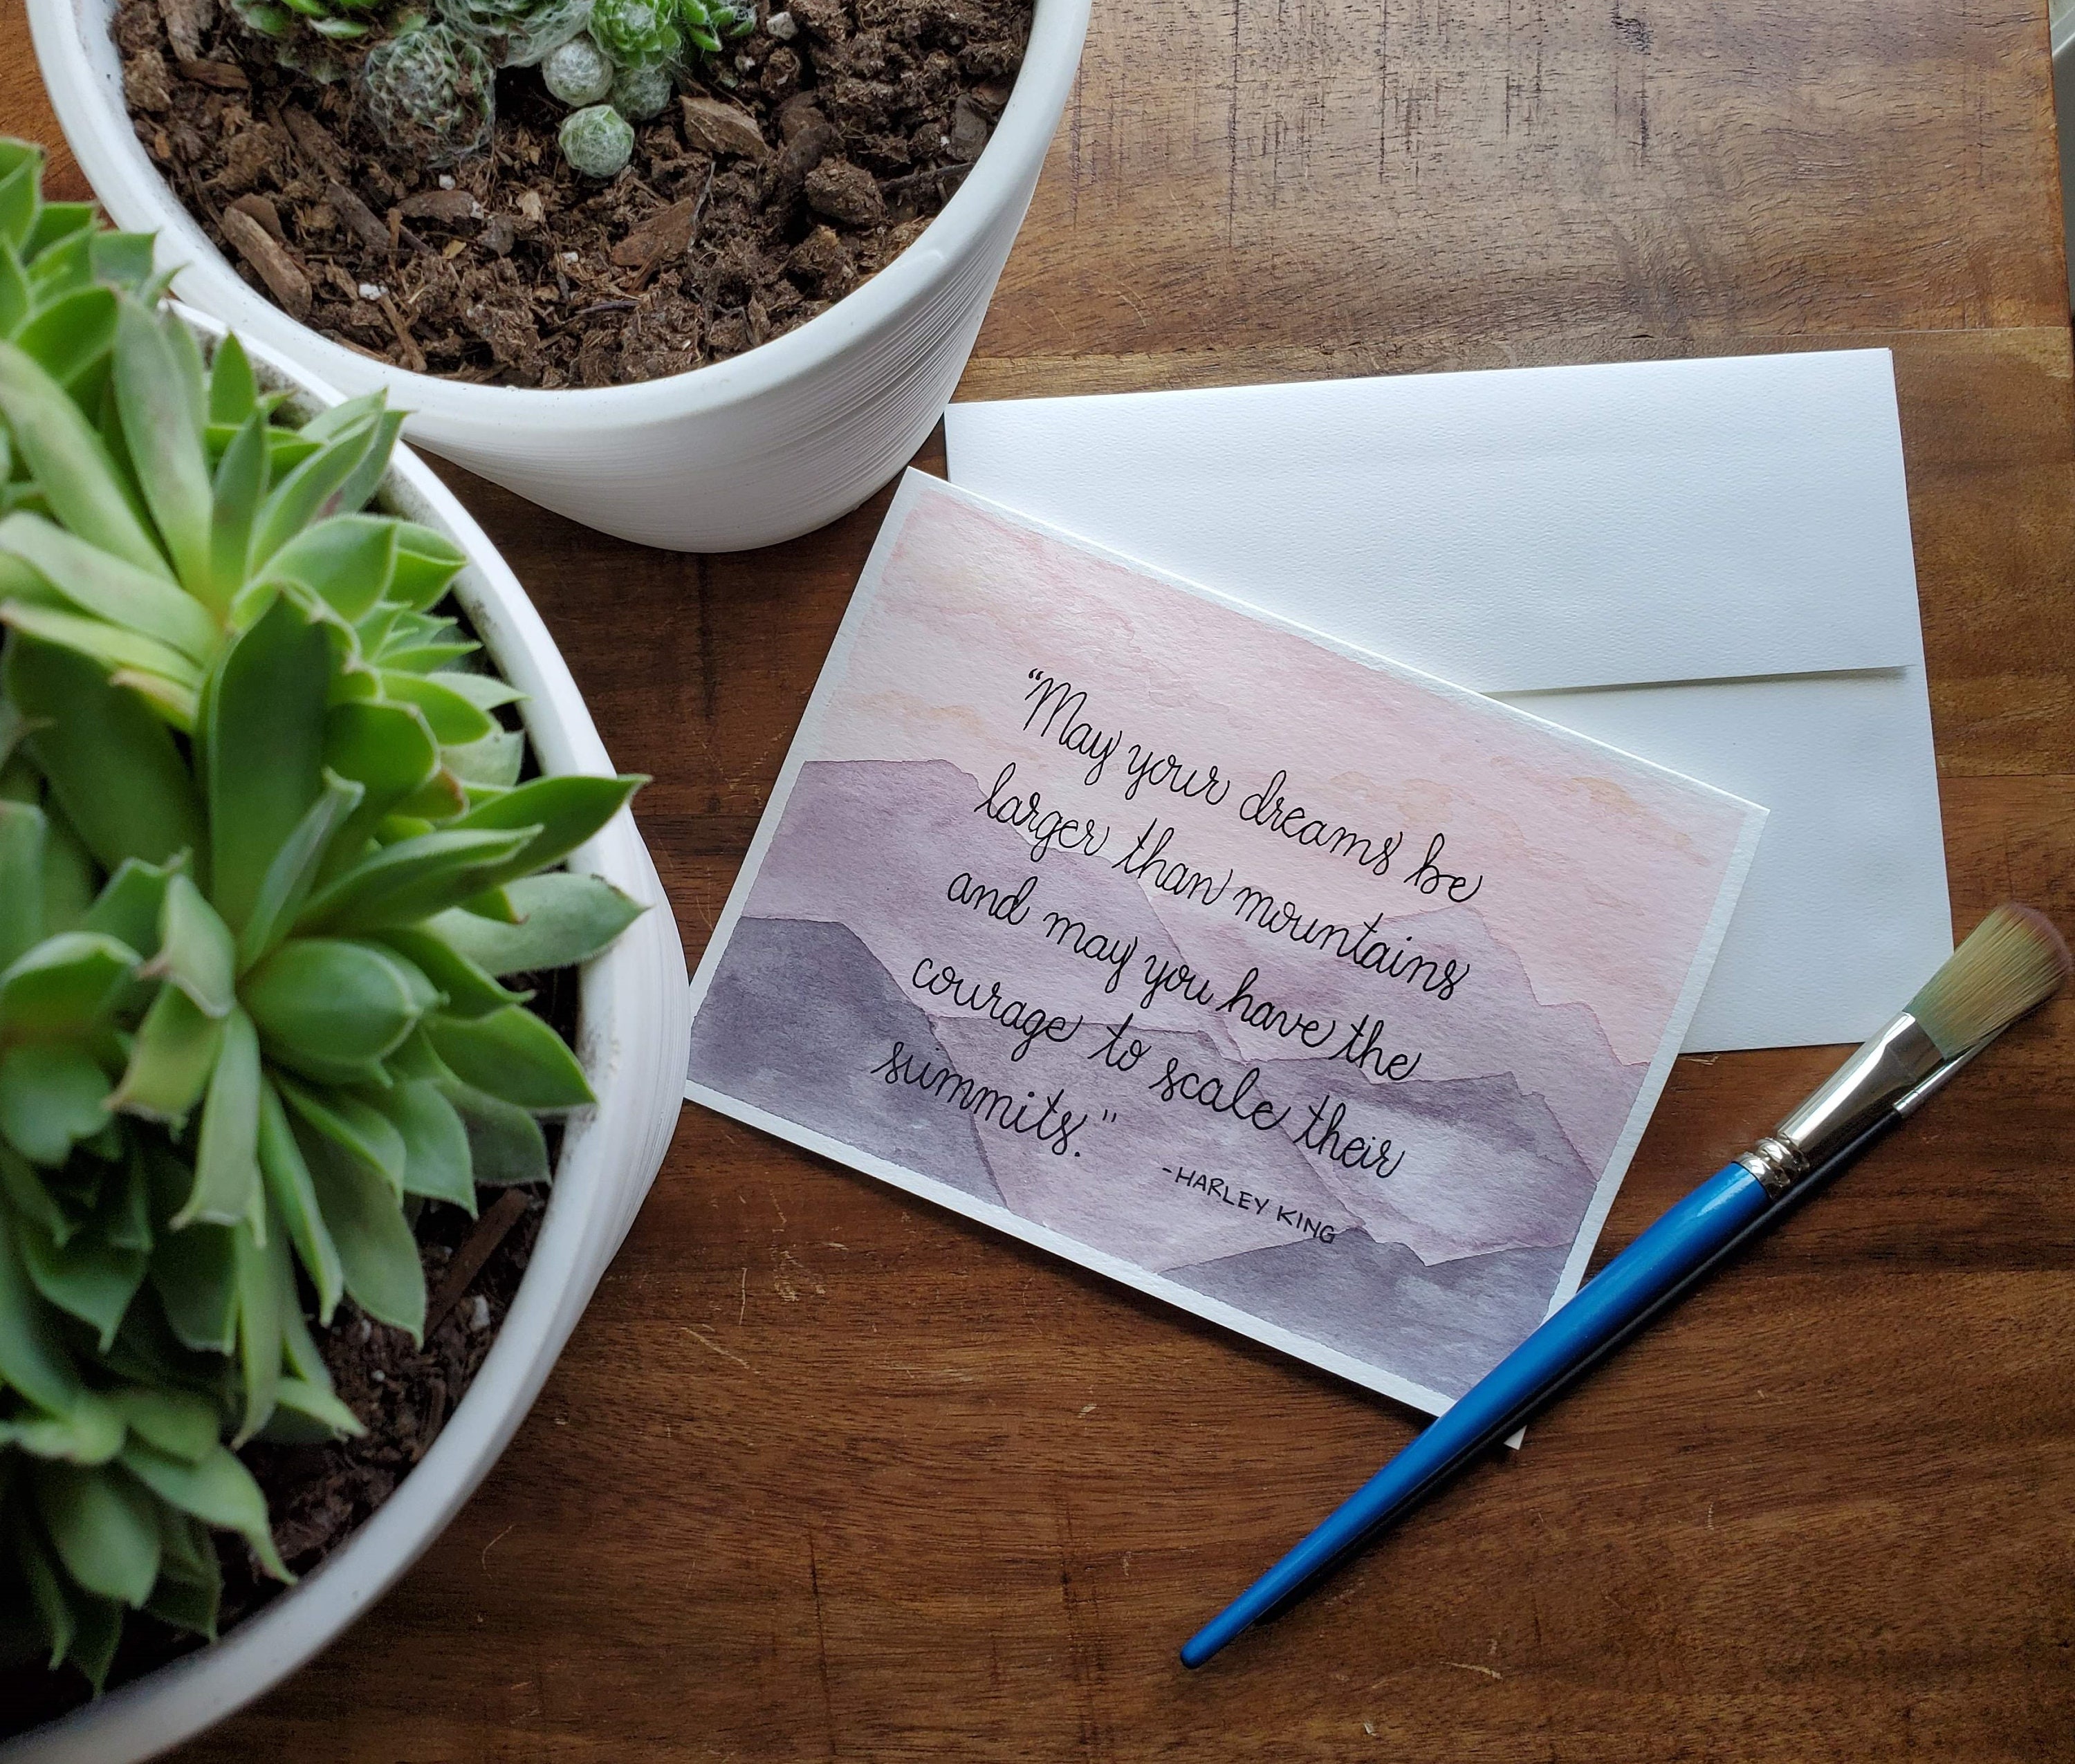 “May your dreams be
larger than mountains
and may you have the
courage to scale their
summits."
-HARLEY KING